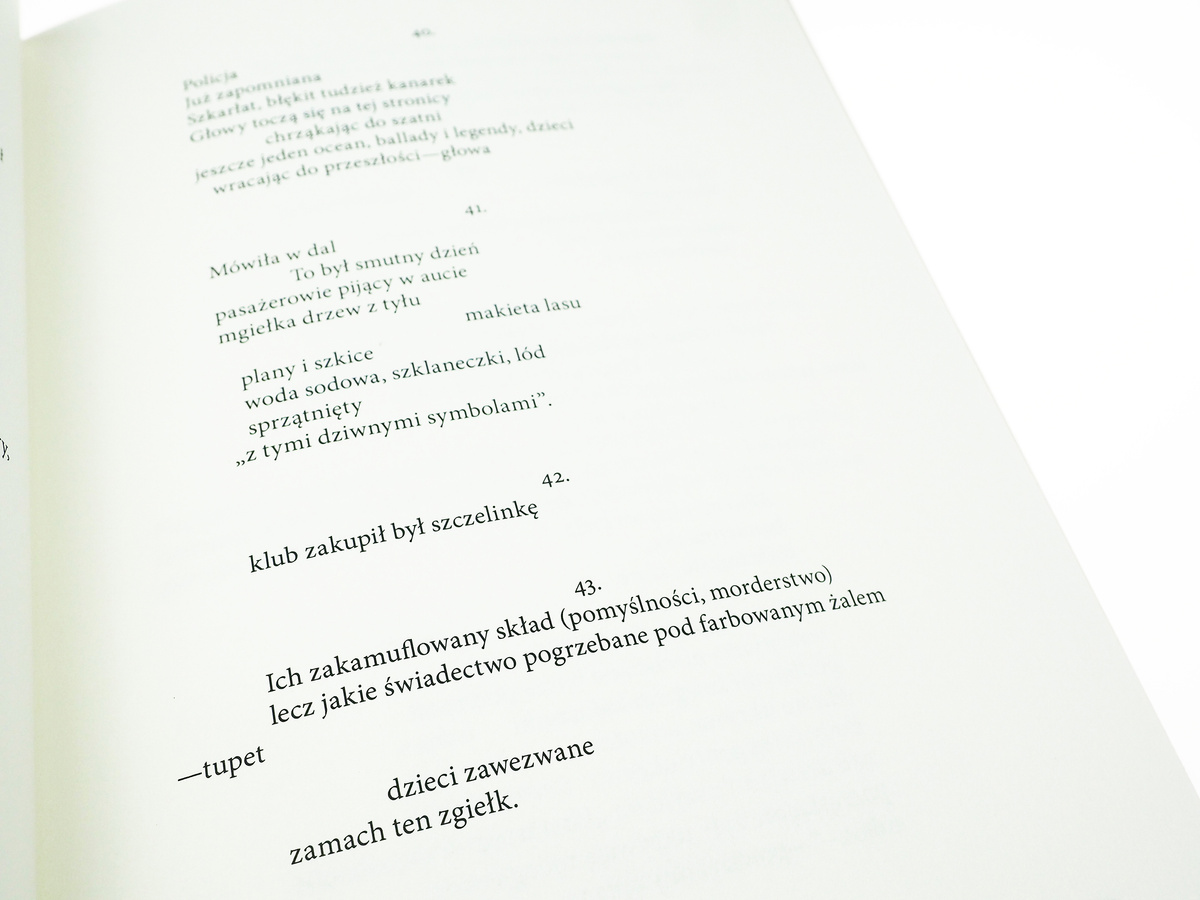 40.
Policja
Już zapomniana
Szkarłat, błękit tudzież kanarek
Głowy toczą się na tej stronicy
chrząkając do szatni
jeszcze jeden ocean, ballady i legendy, dzieci
wracając do przeszłości—głowa
41.
Mówiła w dal
To był smutny dzień
pasażerowie pijący w aucie
mgiełka drzew z tyłu
makieta lasu
plany i szkice
woda sodowa, szklaneczki, lód
sprzątnięty
„z tymi dziwnymi symbolami”.
42.
klub zakupił był szczelinkę
43.
Ich zakamuflowany skład (pomyślności, morderstwo)
lecz jakie świadectwo pogrzebane pod farbowanym żalem
—tupet
dzieci zawezwane
zamach ten zgiełk.